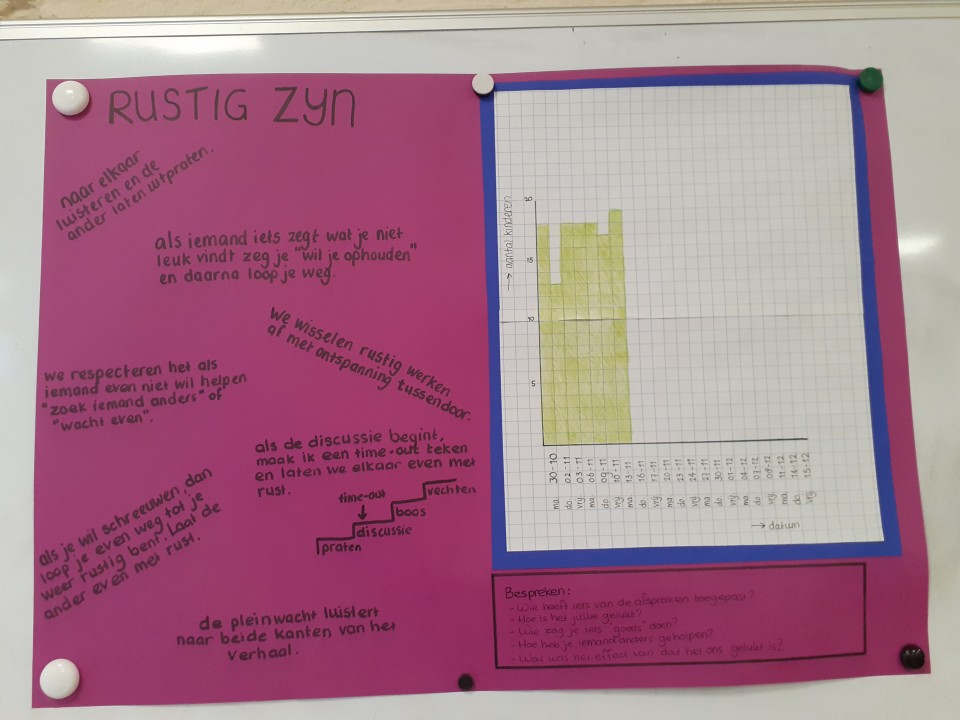 RUSTIG ZYN
naar elkaar
luisteren en de
ander laten uitpraten.
als iemand iets zegt wat je niet
leuk vindt zeg je "wil je ophouden"
en daarna loop je weg.
we wisselen rustig werken
af met ontspanning tussendoor.
we respecteren het als
iemand even niet wil helpen
"zoek iemand anders" of
"wacht even".
als de discussie begint,
maak ik een time-out teken
en laten we elkaar even met
rust.
time-out
vechten
boos
discussie
praten
als je wil schreeuwen dan
loop je even weg tot je
weer rustig bent. Laat de
ander even met rust.
de pleinwacht luistert
naar beide kanten van het
verhaal.
→ aantal kinderen
15
10
5
ma. 30-10
do. 02-11
vrij. 03-11
ma. 06-11
do. 09-11
vrij. 10-11
ma. 13-11
do. 16-11
vrij. 17-11
ma. 20-11
do. 23-11
vrij. 24-11
ma. 27-11
do. 30-11
vrij. 01-12
ma. 04-12
do. 07-12
vrij. 08-12
ma. 11-12
do. 14-12
vrij. 15-12
→ datum
Bespreken:
- Wie heeft iets van de afspraken toegepast?
- Hoe is het jullie gelukt?
- Wie zag je iets "goeds" doen?
- Hoe heb je iemand anders geholpen?
- Wat was het effect van dat het ons gelukt is?